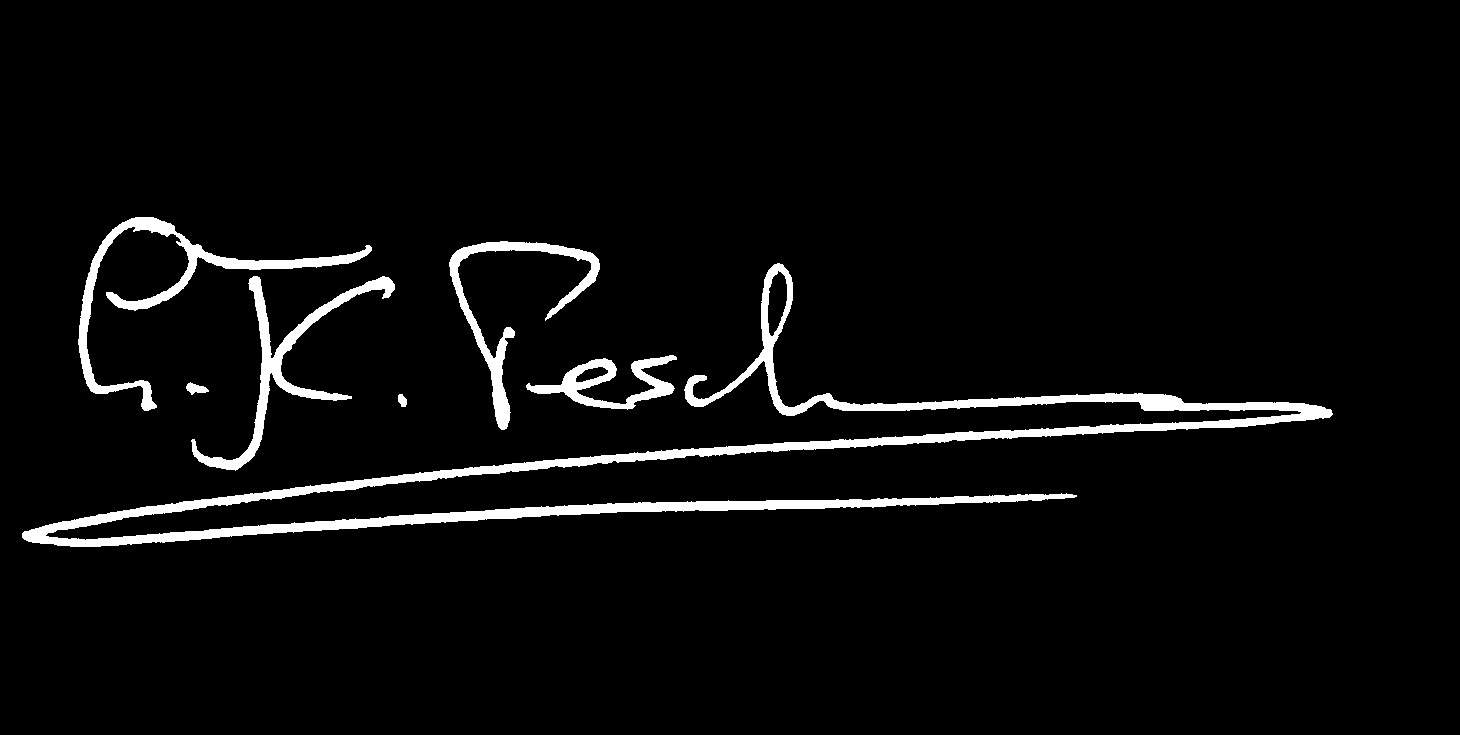 G.J.K. Pesch